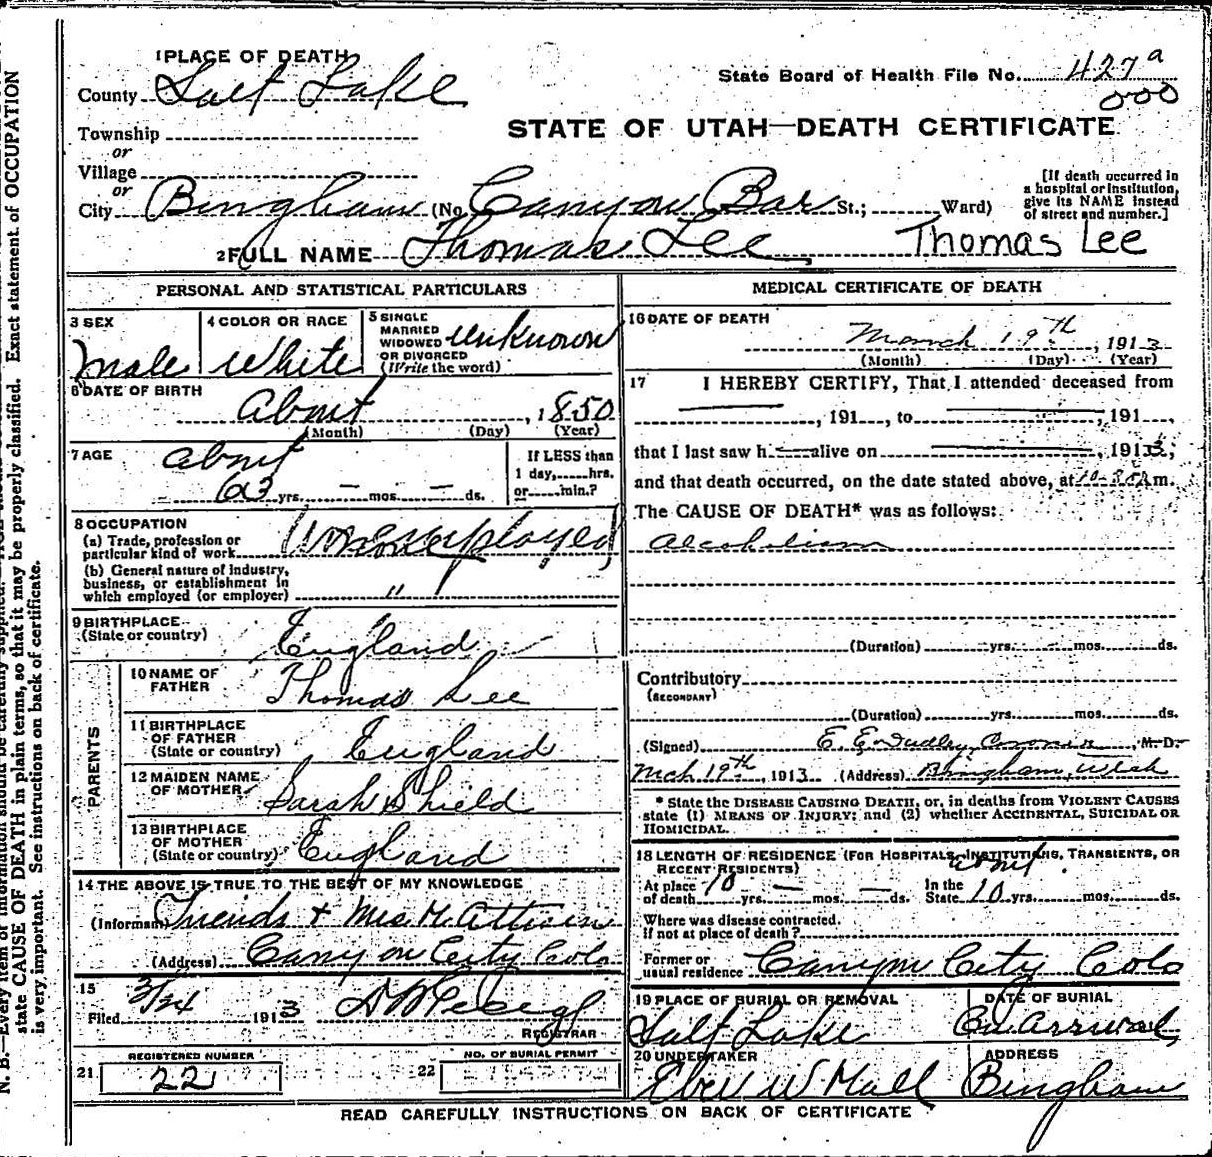 1 PLACE OF DEATH
County Salt Lake
State Board of Health File No. 427 a
000
Township
or
STATE OF UTAH—DEATH CERTIFICATE
Village
or
City Bingham (No. Canyon Bar St.; Ward)
[If death occurred in
a hospital or institution,
give its NAME instead
of street and number.]
2 FULL NAME Thomas Lee Thomas Lee
PERSONAL AND STATISTICAL PARTICULARS
3 SEX
male
4 COLOR OR RACE
White
5 SINGLE
MARRIED
WIDOWED
OR DIVORCED
(Write the word)
unknown
6 DATE OF BIRTH
About , 1850
(Month) (Day) (Year)
7 AGE
About
63 yrs. — mos. — ds.
If LESS than
1 day, hrs.
or min.?
8 OCCUPATION
(a) Trade, profession or
particular kind of work
(b) General nature of industry,
business, or establishment in
which employed (or employer) "
9 BIRTHPLACE
(State or country)
England
PARENTS
10 NAME OF
FATHER
Thomas Lee
11 BIRTHPLACE
OF FATHER
(State or country)
England
12 MAIDEN NAME
OF MOTHER
Sarah Shield
13 BIRTHPLACE
OF MOTHER
(State or country)
England
14 THE ABOVE IS TRUE TO THE BEST OF MY KNOWLEDGE
(Informant) Friends + Mrs M.
(Address) Canyon City Colo
15
Filed 3/24 1913
REGISTRAR
REGISTERED NUMBER
21 22
NO. OF BURIAL PERMIT
22
MEDICAL CERTIFICATE OF DEATH
16 DATE OF DEATH
March 19th , 1913
(Month) (Day) (Year)
17 I HEREBY CERTIFY, That I attended deceased from
, 191 , to , 191 ,
that I last saw h alive on , 1913;
and that death occurred, on the date stated above, at m.
The CAUSE OF DEATH* was as follows:
Alcoholism
(Duration) yrs. mos. ds.
Contributory
(SECONDARY)
(Duration) yrs. mos. ds.
(Signed) E. E. Dudley, Coroner, M. D.
Mch 19th, 1913 (Address) Bingham, Utah
* State the DISEASE CAUSING DEATH, or, in deaths from VIOLENT CAUSES
state (1) MEANS OF INJURY; and (2) whether ACCIDENTAL, SUICIDAL OR
HOMICIDAL.
18 LENGTH OF RESIDENCE (FOR HOSPITALS, INSTITUTIONS, TRANSIENTS, OR
RECENT RESIDENTS) About
At place
of death 10 yrs. — mos. — ds. In the
State 10 yrs. mos. ds.
Where was disease contracted.
If not at place of death?
Former or
usual residence Canyon City Colo
19 PLACE OF BURIAL OR REMOVAL
Salt Lake
DATE OF BURIAL
On Arrival
20 UNDERTAKER
Eber W Hall
ADDRESS
Bingham
READ CAREFULLY INSTRUCTIONS ON BACK OF CERTIFICATE
state CAUSE OF DEATH in plain terms, so that it may be properly classified. Exact statement of OCCUPATION
is very important. See instructions on back of certificate.